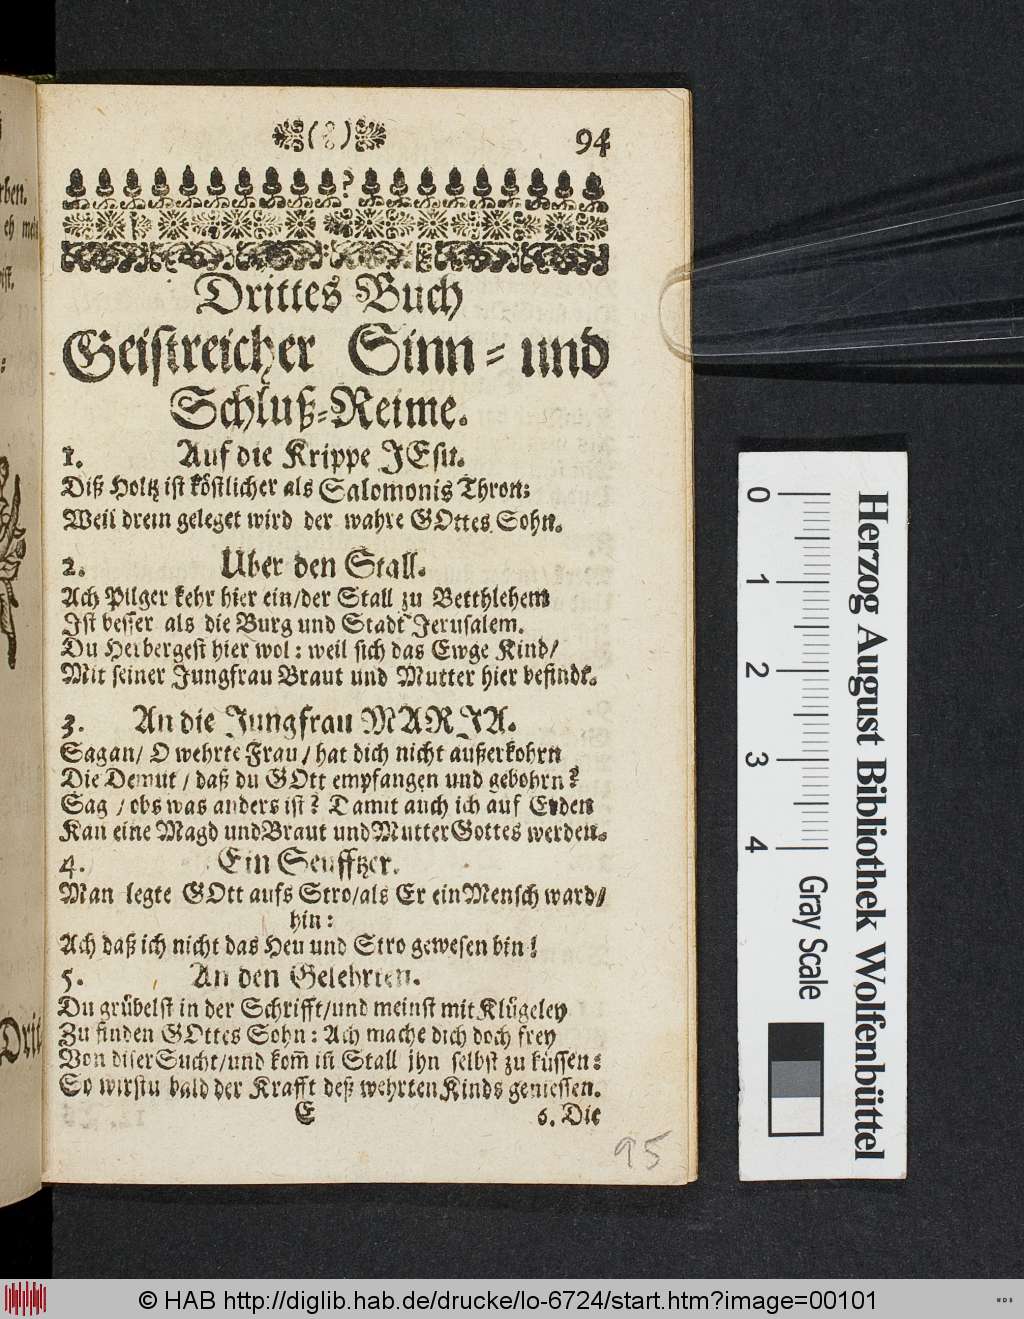 94
Drittes Buch
Geistreicher Sinn- und
Schluß-Reime.
1. Auf die Krippe JEsu.
Diß Holtz ist köstlicher als Salomonis Thron;
Weil drein geleget wird der wahre GOttes Sohn.
2. Uber den Stall.
Ach Pilger kehr hier ein/der Stall zu Betthlehem
Ist besser als die Burg und Stadt Jerusalem.
Du Herbergest hier wol: weil sich das Ewge Kind/
Mit seiner Jungfrau Braut und Mutter hier befindt.
3. An die Jungfrau MARJA.
Sagan/ O wehrte Frau/ hat dich nicht außerkohrn
Die Demut/ daß du GOtt empfangen und gebohrn?
Sag/ obs was anders ist? Damit auch ich auf Erden
Kan eine Magd und Braut und Mutter Gottes werden.
4. Ein Seufftzer.
Man legte GOtt aufs Stro/als Er ein Mensch ward/
hin:
Ach daß ich nicht das Heu und Stro gewesen bin!
5. An den Gelehrten.
Du grübelst in der Schrifft/und meinst mit Klügeley
Zu finden GOttes Sohn: Ach mache dich doch frey
Von diser Sucht/und kom̃ in Stall jhn selbst zu küssen:
So wirstu bald der Krafft deß wehrten Kinds geniessen.
E 6. Die
95
rben.
ist.
Drit
0 1 2 3 4
Gray Scale
Herzog August Bibliothek Wolfenbüttel
© HAB http://diglib.hab.de/drucke/lo-6724/start.htm?image=00101
WDB